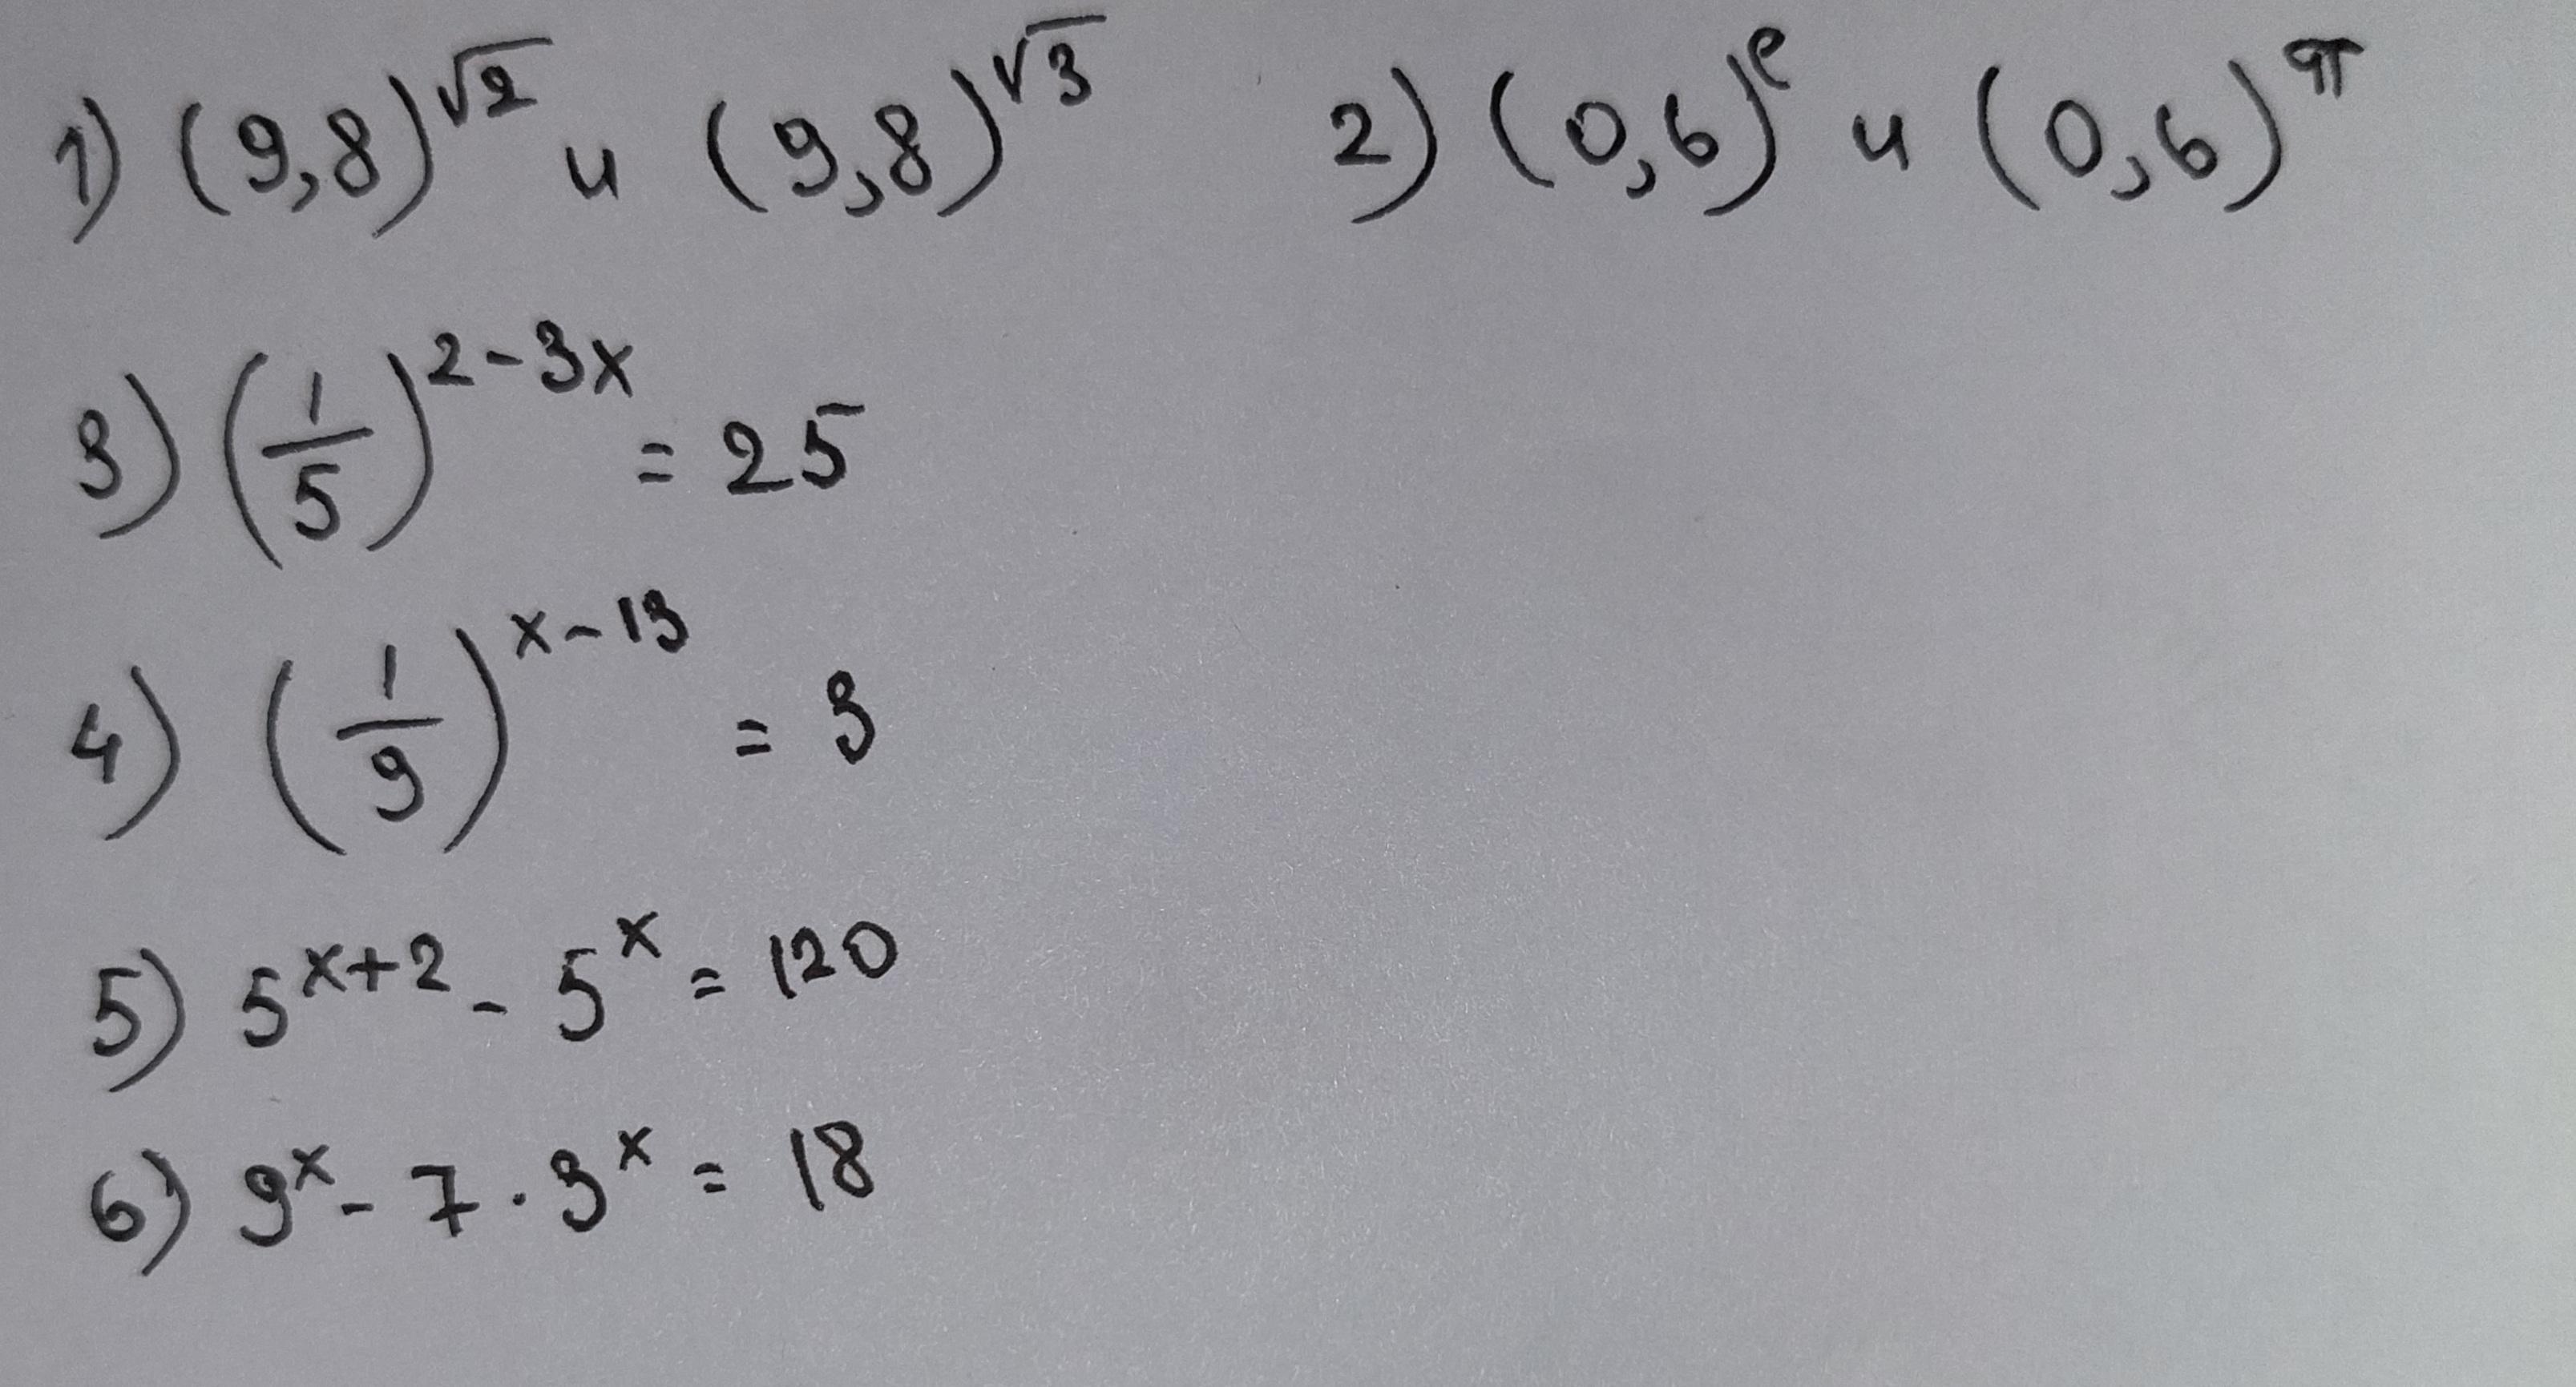 1) (9,8)^√2 и (9,8)^√3 2) (0,6)^e и (0,6)^π
3) (1/5)^(2-3x) = 25
4) (1/9)^(x-13) = 3
5) 5^(x+2) - 5^x = 120
6) 9^x - 7 · 3^x = 18